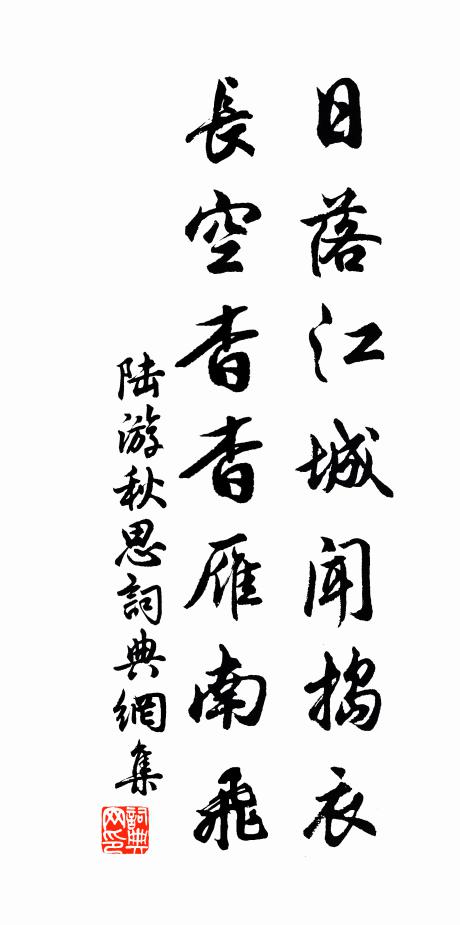 日落江城聞搗衣
長空杳杳雁南飛
陆游秋思詞典網集
詞典
网印